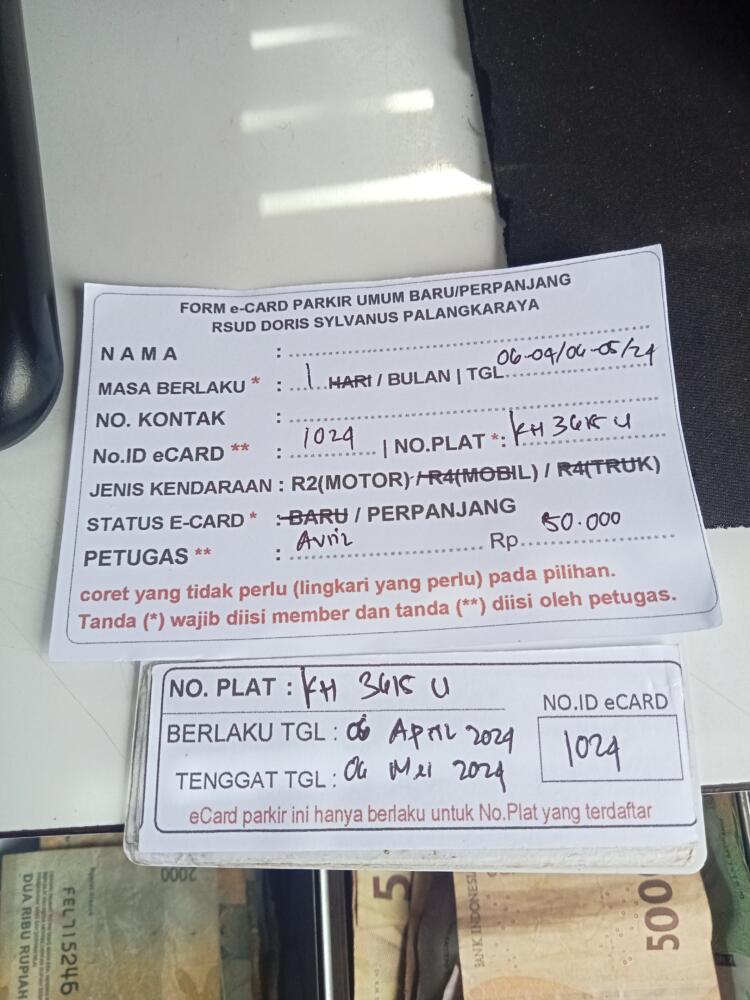 FORM e-CARD PARKIR UMUM BARU/PERPANJANG
RSUD DORIS SYLVANUS PALANGKARAYA
NAMA :
MASA BERLAKU * : 1 HARI / BULAN | TGL 06-04/06-05/24
NO. KONTAK :
No.ID eCARD ** : 1024 | NO.PLAT *: KH 3615 U
JENIS KENDARAAN : R2(MOTOR) / R4(MOBIL) / R4(TRUK)
STATUS E-CARD * : BARU / PERPANJANG
PETUGAS ** : Rp. 50.000
coret yang tidak perlu (lingkari yang perlu) pada pilihan.
Tanda (*) wajib diisi member dan tanda (**) diisi oleh petugas.
NO. PLAT : KH 3615 U
NO.ID eCARD
1024
BERLAKU TGL : 06 April 2024
TENGGAT TGL : 06 Mei 2024
eCard parkir ini hanya berlaku untuk No.Plat yang terdaftar
2000
FEL715246
DUA RIBU RUPIAH
5
BANK INDONESIA
500